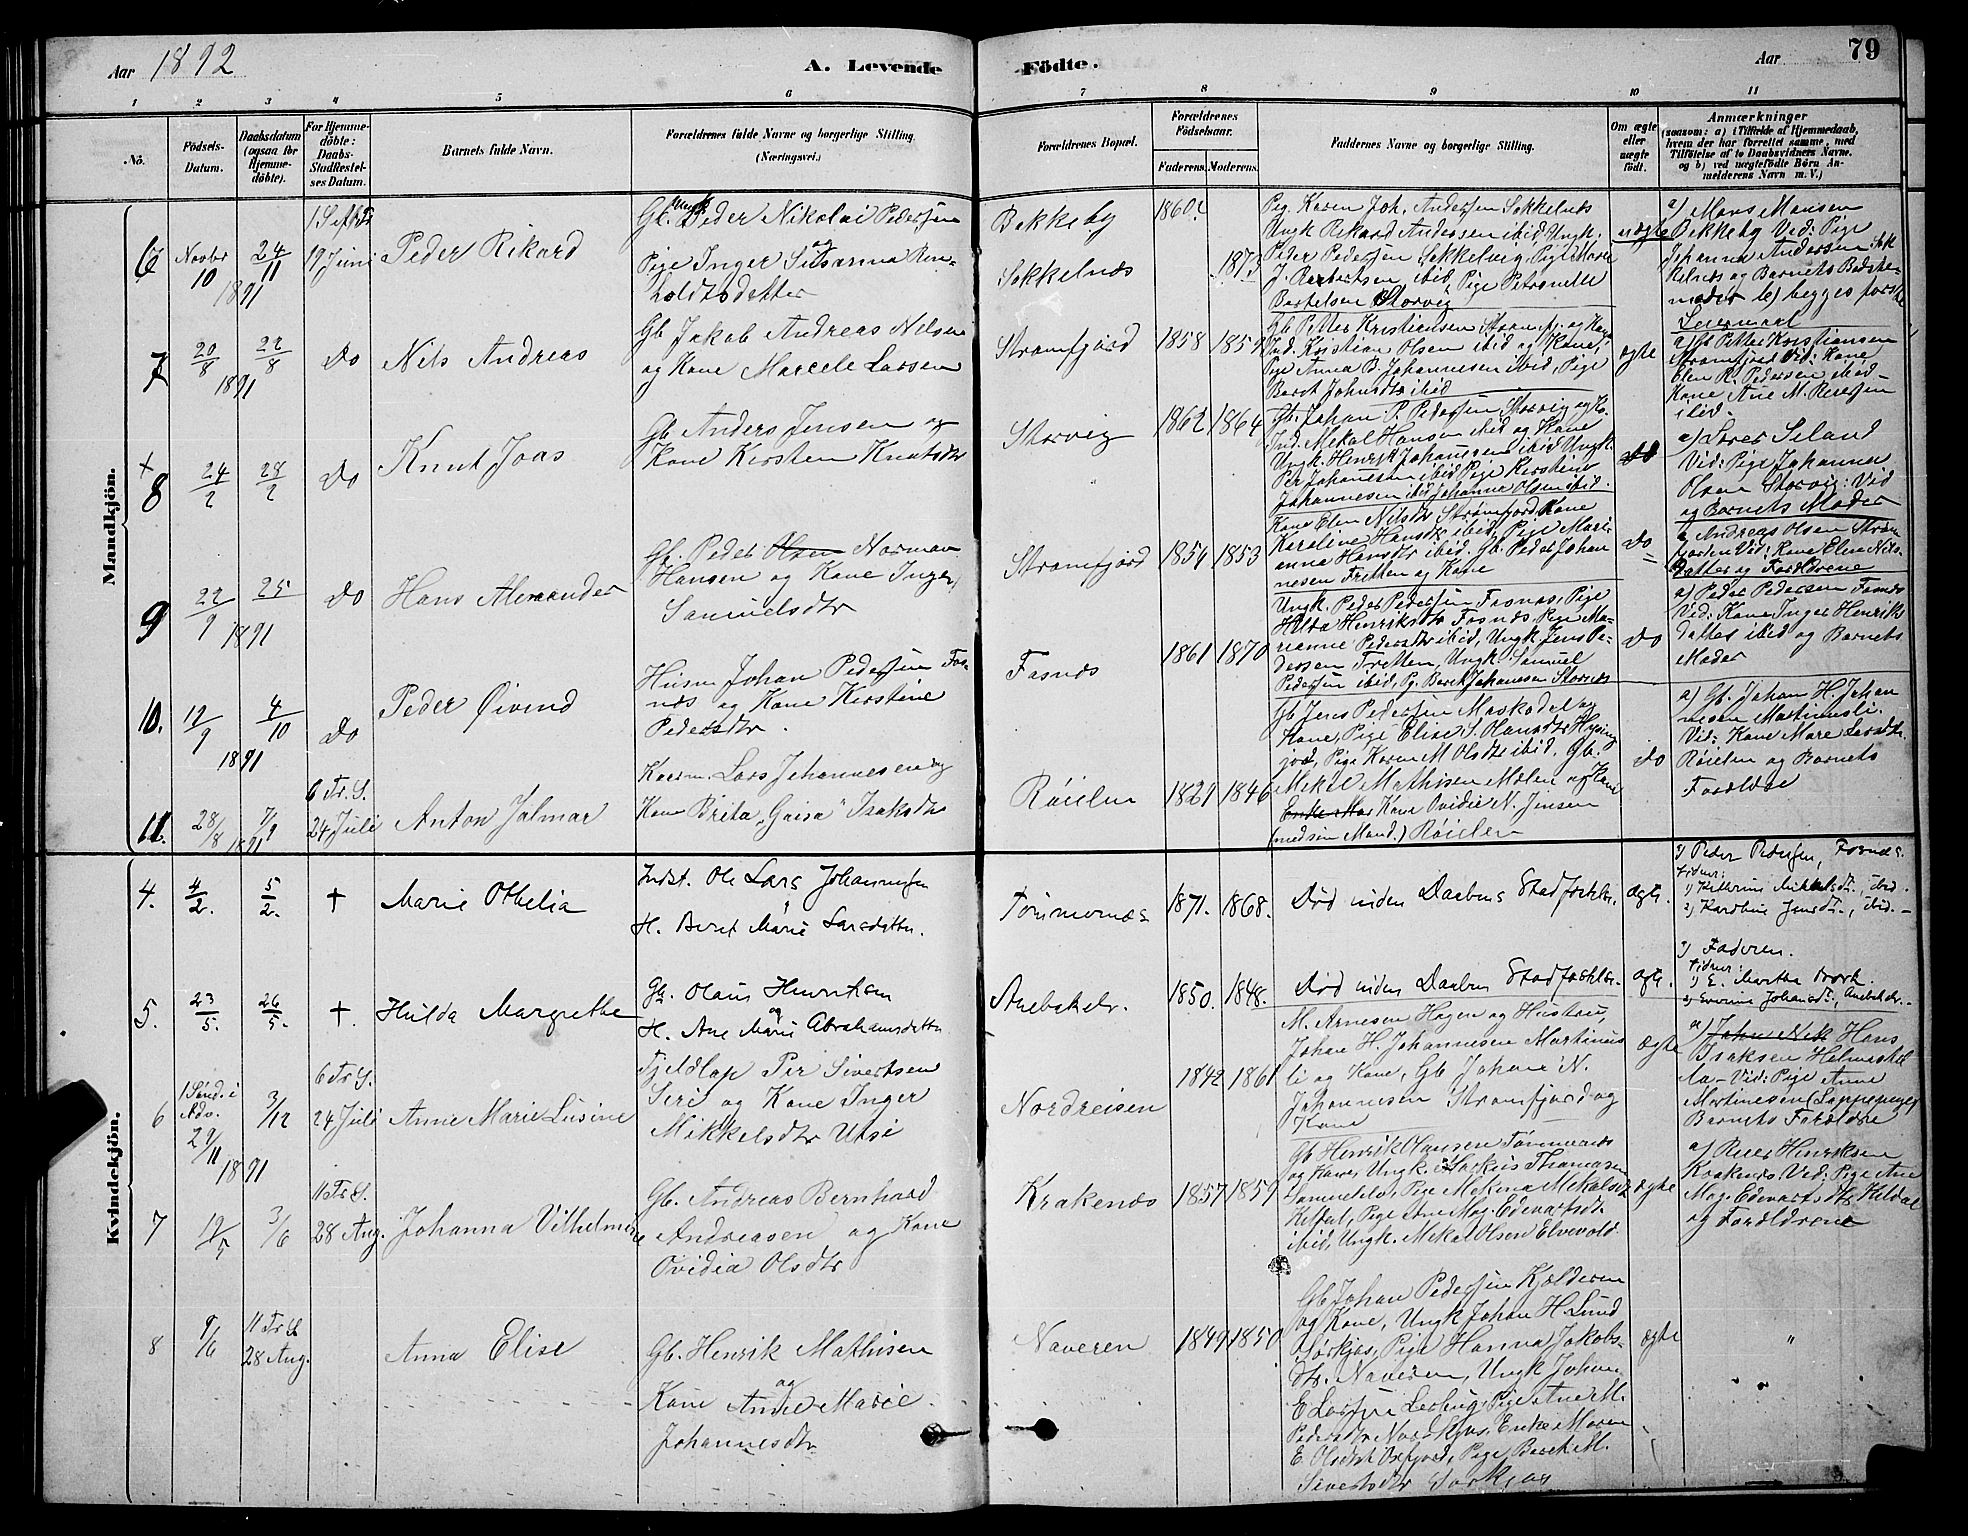 Aar 1892
A. Levende
Födte.
Aar
79
1 2 3 4 5 6 7 8 9 10 11
No.
Födsels-
Datum.
Daabsdatum
(ogsaa for
Hjemme-
döbte).
For Hjemme-
döbte:
Daabs-
Stadfæstel-
ses Datum.
Barnets fulde Navn.
Forældrenes fulde Navne og borgerlige Stilling.
(Næringsvei.)
Forældrenes Bopæl.
Forældrenes
Födselsaar.
Faderens. Moderens.
Faddernes Navne og borgerlige Stilling.
Om ægte
eller
uægte
födt.
Anmærkninger
(saasom: a) i Tilfælde af Hjemmedaab,
hvem der har forrettet samme, med
Tilföielse af to Daabsvidners Navne.
og b) ved uægtefödte Börn An-
melderens Navn m. V.)
Mandkjön.
6
Novbr
10
1891
24/11
19 Juni
Peder Rikard
Gb. Peder Nikolai Pedersen
og
Pige Inger Susanna Rein-
holdtsdatter
Bakkeby
Sokkelnæs
1860
1873
Pig. Karen Joh. Andersen Sokkelnæs
Ungk Rikard Andersen ibid, Ungk.
Peder Pedersen Sokkelvig, Pige Marie
J. Robertsen ibid, Pige Petronelle
Bertelsen Storvig
uægte
a) Mons Monsen
Bakkeby Vid: Pige
Johanna Andersen Sok
kelnæs og Barnets Bedste-
moder b) begges første
Leiermaal
7
20/8
1891
22/8
Do
Nils Andreas
Gb Jakob Andreas Nilsen
og Kone Marcele Larsen
Strømfjord
1858
1859
Gb Petter Kristiansen Strømfj. og Kone
Ind. Kristian Olsen ibid og Kone,
Pige Anna B. Johannesen ibid, Pige
Beret Johnsdtr ibid
ægte
a) Gb Petter Kristiansen
Strømfjord Vid: Kone
Elen R. Pedersen ibid-
Kone Ane M.
ibid.
+
8
24/2
28/2
Do
Knut Joas
Gb. Anders Jensen og
Kone Kirsten Knutsdtr
Storvig
1862
1864
Gb. Johan P. Pedersen Storvig og Ko.
Ind. Mekal Hansen ibid og Kone
Ungk. Henrik Johannesen ibid Ungk.
Per Johanesen ibid Pige Kirstene
Johannesen ibid Johanna Olsen ibid.
Do
Vid: Pige Johanna
Olsen Storvig: Vid
og Barnets Moder
9
22/9
1891
25
Do
Hans Alexander
Gb. Peder Olsen Norman
Hansen og Kone Inger
Samuelsdtr
Strømfjord
1854
1853
Kone Elen Nilsdtr Strømfjord, Kone
Karoline Hansdtr ibid, Pige Mari-
anna Hansdtr ibid. Gb. Peder Johan
nesen Tretten og Kone
Do
a) Andreas Olsen Strøm
fjorden Vid: Kone Elen Nils-
datter og Forældrene
10.
12/9
1891
4/10
Do
Peder Øivind
Husm Johan Pedersen Fos-
næs og Kone Kirstine
Pedersdtr.
Fosnæs
1861
1870
Ungk. Peder Pedersen Fosnæs, Pige
Hilda Henriksdtr Fosnæs, Pige Ma-
rianne Pedersdtr ibid, Ungk Jens Pe-
dersen Tretten, Ungk. Samuel
Pedersen ibid, Pg. Beret Johanesen Storvik
Do
a) Peder Pedersen Fosnæs
Vid: Kone Inger Henriks
datter ibid og Barnets
Moder
11.
28/8
1891
7/9
6 Tr. S.
24 Juli
Anton Jalmar
Kvæn. Lars Johannesen og
Kone Brita "Gaisa" Isaksdtr
Røielen
1829
1846
Gb Jens Pedersen Maskodal og
Kone, Pige Elise S. Hansdtr Hysing
jord, Pige Karen M Olsdtr ibid, Gb.
Mekal Mathisen Molen og Kone
Enke Mar Kone Ovidie N. Jensen
(med sin Mand.) Røielen
Do
a) Gb. Johan H. Johan
nesen Martinusli.
Vid: Kone Mare Larsdtr.
Røielen og Barnets
Forældre
Kvindekjön.
4.
4/2.
5/2.
+
Marie Othelia
Indst. Ole Lars Johannesen
H. Beret Marie Larsdatter.
Tømmernæs
1871.
1868.
Død inden Daabens Stadfæstelse.
ægte.
a) Peder Pedersen, Fosnæs.
Vidner:
1) Kathrine Mikkelsdtr., ibid.
2) Karoline Jensdtr., ibid.-
5.
23/5.
26/5.
+.
Hulda Margrethe
Gb. Olaus Henriksen
og
H. Ane Marie Abrahamsdatter
1850.
1848.
Død inden Daabens Stadfæstelse.
ægte.
a) Faderen.
Vidner:
1) E. Martha Bork.
6
1 Sønd. i
Adv.
29/11
1891
3/12
6 Tr S.
24 Juli
Anne Marie Lusine
Fjeldlap Per Sivertsen
Siri og Kone Inger
Mikkelsdtr Utsi
Nordreisen
1842
1861
M. Arnesen Hagen og Hustru,
Johan H. Johannesen Martinus
li og Kone, Gb Johan N.
Johannesen Strømfjord og
Kone
ægte
a) John Nilk Hans
Isaksen
Aa- Vid: Pige Anne
Mortinesen (Lappepige)
Barnets Forældre
7
12/5
3/6
11 Tr. S.
28 Aug.
Johanna Vilhelmine
Gb. Andreas Bernhard
Andreasen og Kone
Ovidia Olsdtr
Krakenæs
1857
1859
Gb Henrik Hansen Tømmernæs
og Kone, Ungk. Markus Thomasen
Mekalsdtr
Keldal, Pige Ane Mag. Edevartsdtr.
ibid, Ungk. Mekal Olsen Elvevold.
ægte
a) Peder Henriksen
Krakenæs, Vid: Pige Ane
Mag. Edevartsdtr Keldal
og Forældrene
8
9/6
11 Tr S.
28 Aug.
Anna Elise
Gb. Henrik Mathisen
og
Kone Anne Marie
Johannesdtr
Naveren
1849
1850
Gb Johan Pedersen Kjelderen
og Kone, Ungk Johan H. Lund
Sørkjos, Pige Hanna Jakobs-
dtr. Naveren, Ungk Johan
E Larsen Lerbug, Pige Ane M.
Pedersdtr Nordkjos, Enke Maren
E. Olsdtr Oxfjord, Pige Beret M.
Sivertsdtr Sørkjos
ægte
"
" "